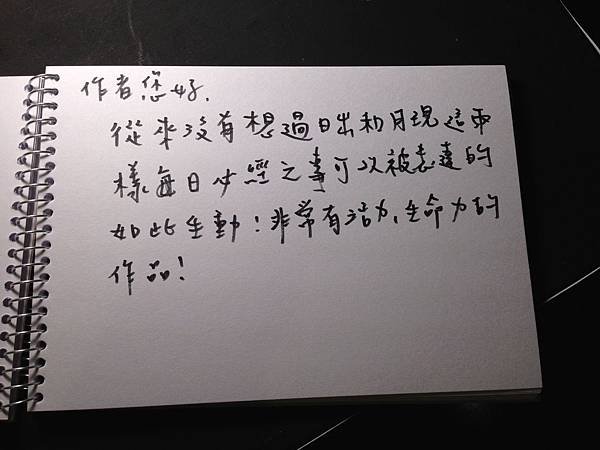 作者您好.
從來沒有想過日出和月現這兩
樣每日必經之事可以被表達的
如此生動！非常有活力、生命力的
作品！